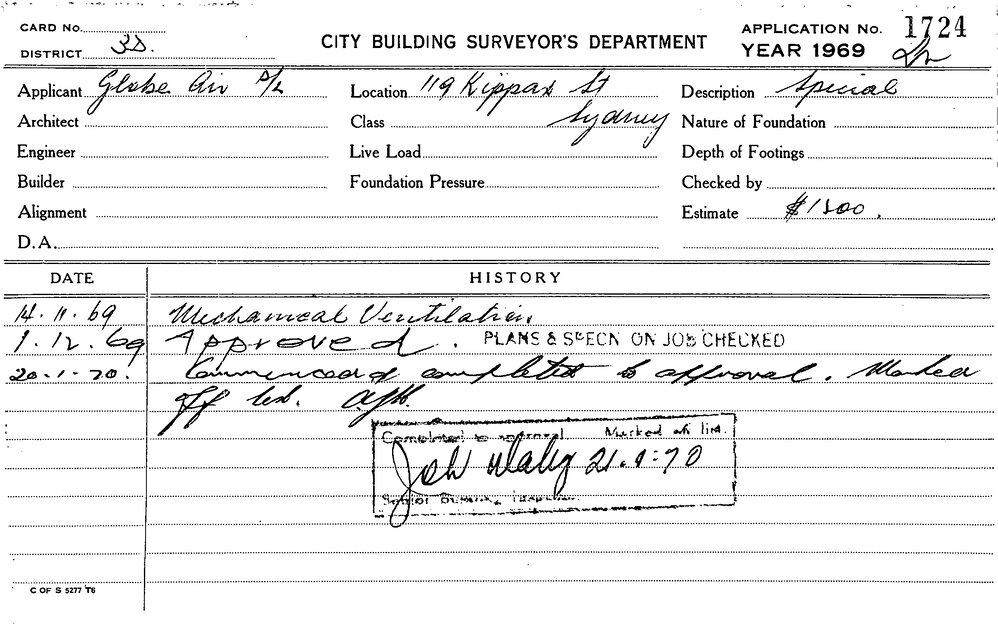 CARD No.
APPLICATION No. 1724
DISTRICT 3D.
CITY BUILDING SURVEYOR'S DEPARTMENT
YEAR 1969
Applicant Globe Air P/L
Location 119 Kippax St Sydney
Description Special
Architect
Class
Nature of Foundation
Engineer
Live Load
Depth of Footings
Builder
Foundation Pressure
Checked by
Alignment
Estimate $1800.
D.A.
DATE HISTORY
14.11.69 Mechanical Ventilation.
1.12.69 Approved. PLANS & SPECN ON JOB CHECKED
20.1.70. Commenced & completed to approval. Marked
off list.
Completed to approval Marked off list.
21.1.70
Senior Building Inspector.
C OF S 5277 T6